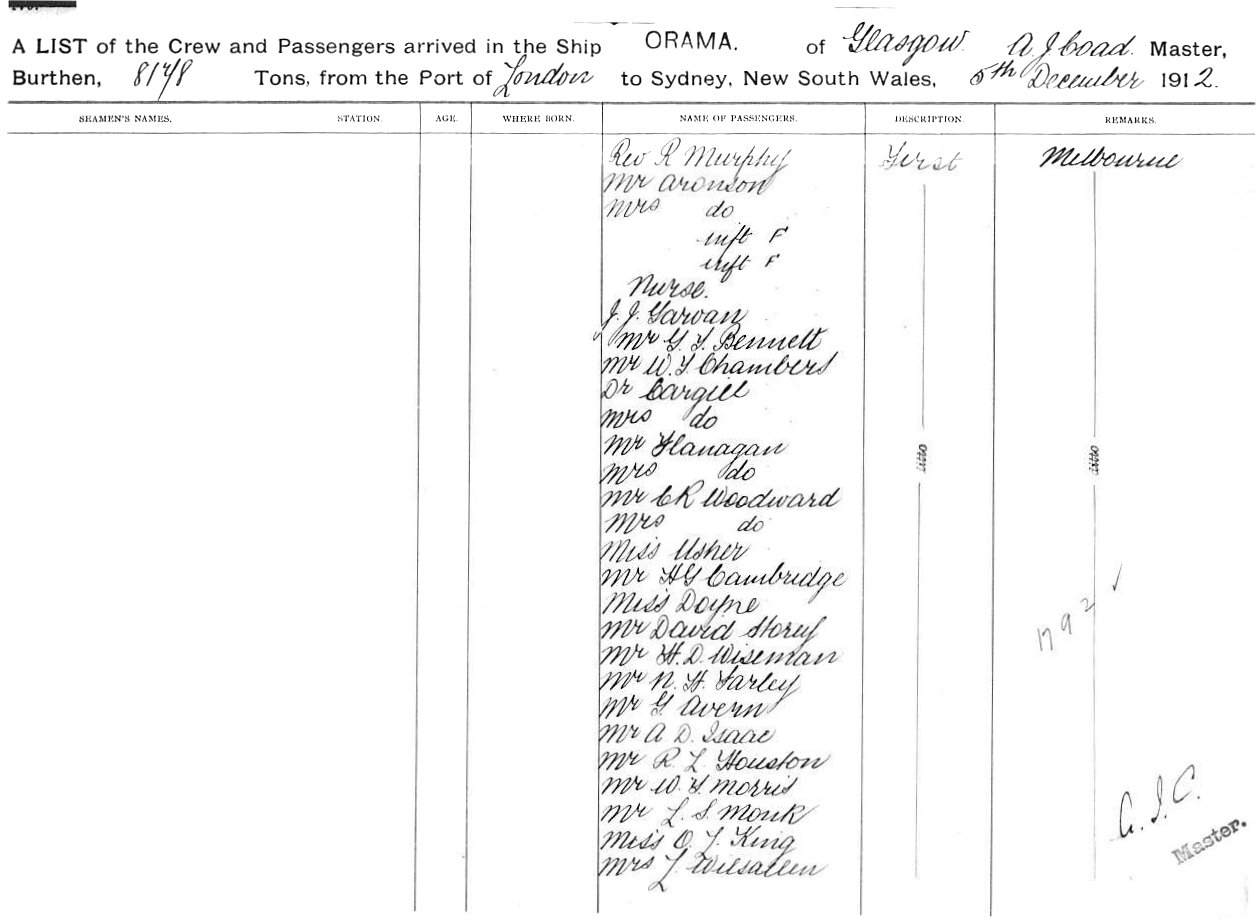 A LIST of the Crew and Passengers arrived in the Ship ORAMA. of Glasgow A J Coad Master,
Burthen, 8178 Tons, from the Port of London to Sydney, New South Wales, 5th December 1912.
SEAMEN'S NAMES. STATION. AGE. WHERE BORN. NAME OF PASSENGERS. DESCRIPTION. REMARKS.
Rev R Murphy First Melbourne
Mr Aronson
Mrs do
inft F
inft F
Nurse.
J. J. Garvan
Mr G. F. Bennett
Mr W. F Chambers
Dr Cargill
Mrs do
Mr Flanagan ditto ditto
Mrs do
Mr C R Woodward
Mrs do
Miss Usher
Mr H G Cambridge
Miss Doyne
Mr David Storey 1792
Mr H. D. Wiseman
Mr N. H. Farley
Mr G. Avern
Mr A. D. Isaac
Mr R. L. Houston
Mr W. F. Morris
Mr L. S. Monk A. J. C.
Miss O. F. King Master.
Mrs L